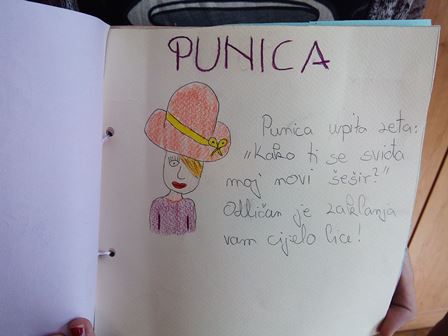 PUNICA
Punica upita zeta:
"Kako ti se sviđa
moj novi šešir?"
Odličan je zaklanja
vam cijelo lice!